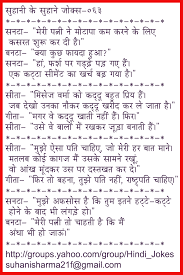 सुहानी के सुहाने जोक्स-०६३
*-*-*-*-*-*-*-*-*-*-*-*-*-*-*-*
सन्टा– "मेरी पत्नी ने मोटापा कम करने के लिए
कसरत शुरू कर दी है।"
बन्टा– "क्या कुछ फायदा हुआ?"
सन्टा– "हां, फर्श पर गड्ढे पड़ गए हैं।
एक कट्टा सीमेंट का खर्च बढ़ गया है।"
*-*-*-*-*-*-*-*-*-*-*-*-*-*-*-*
सीता– "मिसेज वर्मा को कद्दू बहुत प्रिय है।
जब देखो उनका नौकर कद्दू खरीद कर ले जाता है।"
गीता– "मगर वो कद्दू खाती नहीं हैं। फिर।"
सीता– "उसे वे बालों में रखकर जूड़ा बनाती हैं।"
*-*-*-*-*-*-*-*-*-*-*-*-*-*-*-*
सीता– "मुझे ऐसा पति चाहिए, जो मेरी हर बात माने।
मतलब कोई कागज मैं उसके सामने रखूं,
वो आंख मूंदकर उस पर दस्तखत कर दे।"
गीता– "फिर तो बहना, तुझे पति नहीं, राष्ट्रपति चाहिए।"
*-*-*-*-*-*-*-*-*-*-*-*-*-*-*-*
सन्टा– "मुझे अफसोस है कि तुम इतने हट्टे-कट्टे
होने के बाद भी लंगड़े हो।"
बन्टा– "मेरी पत्नी तो चाहती है कि मैं
अंधा भी हो जाऊं।"
*-*-*-*-*-*-*-*-*-*-*-*-*-*-*-*
http://groups.yahoo.com/group/Hindi_Jokes
suhanisharma21@gmail.com